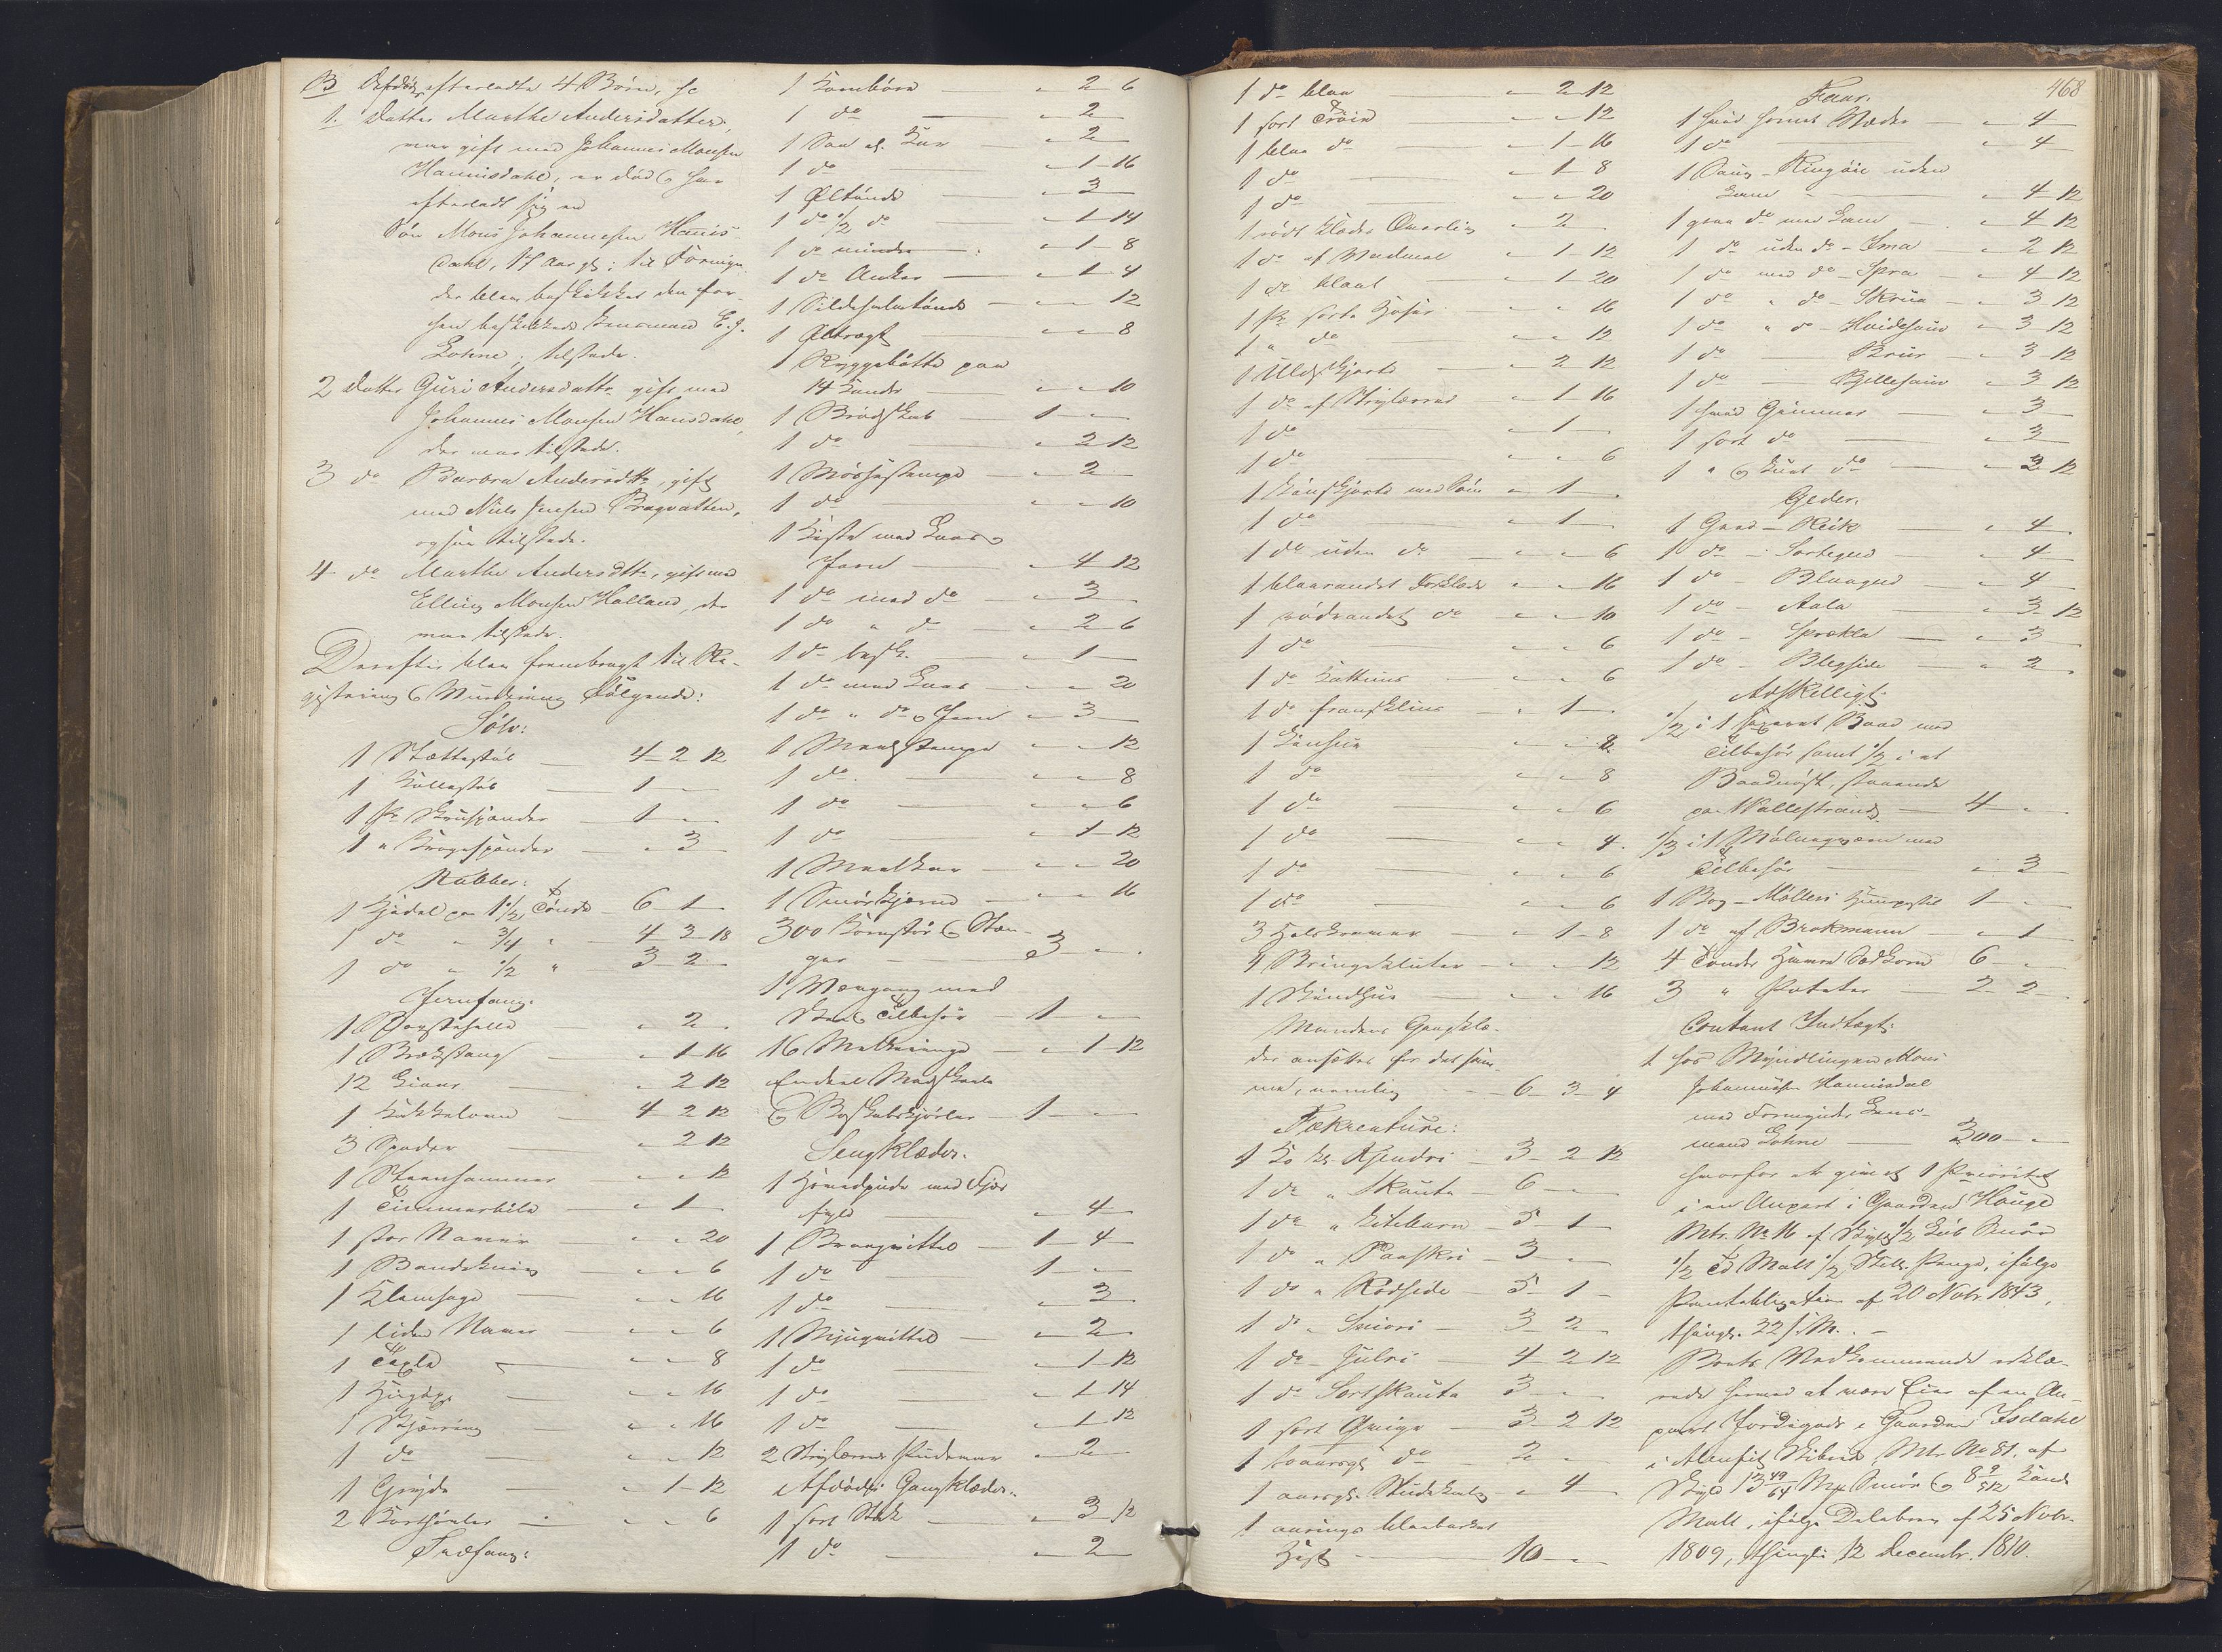 B Afdöde efterladte 4 Börn, sc
1. Datter Marthe Andersdatter,
var gift med Johannes Monsen
Hannisdahl, er död & har
efterladt sig en
Sön Mons Johannesen Hannis
dahl, 17 Aar gl: til Formyn
der blev beskikket den for
hen beskikkede Lensmand E. J.
Lohne; tilstede.
2 Datter Guri Andersdattr gift med
Johannes Monsen Hansdahl,
der var tilstede.
3 do Barbra Andersdtr, gift
med Niels Jensen Bragvatten,
ogsaa tilstede.
4 do Marthe Andersdttr, gift med
Elling Monsen Holland, der
var tilstede.
Derefter blev frembragt til Re-
gistrering & Vurdering Fölgende:
Sölv:
1 Stöttestöb 4 - 2 12
1 Kallestöb 1 - "
1 Pr Skospænder 1 - "
1 " Krogespænder " 3
Kobber:
1 Kjedel paa 1 1/2 Tönde 6 - 1
1 do " 3/4 " 4 - 3 - 18
1 do " 1/2 " 3 - 2
Jernfang:
1 Bagstehelle " 2
1 Brækstang " 1 - 16
12 Liaar " 2 12
1 Kakkelovn 4 - 2 12
3 Spader " 2 12
1 Steenhammer " " 12
1 Timmerbile " 1
1 stor Naver " " 20
1 Bandekniv " " 6
1 Klemsage " " 16
1 liden Naver " " 6
1 Texle " " 8
1 Hugöxe " " 16
1 Skjæring " " 16
1 do " " 12
1 Gryde " 1 - 12
2 Korthövler " " 6
Træfang:
1 Kornböre " 2 6
1 do " 2
1 Saa el. Kar " 2
1 do " 1 - 16
1 Öltönde " 3
1 do 1/2 do " 1 - 14
1 do mindre " 1 - 8
1 do Anker " 1 - 4
1 Sildehalvtönde " " 12
1 Öltragt " " 8
1 Ryggebötte paa
14 Kander " " 10
1 Brödskab 1 - "
1 do " 2 12
1 Mörjestampe " 2
1 do " " 10
1 Kiste med Laas &
Jern " 4 12
1 do med do " 3
1 do " do " 2 6
1 do besk. " 1
1 do med Laas " " 20
1 do " do & Jern " 3
1 Meelstampe " " 12
1 do " " 8
1 do " " 6
1 do " 1 - 12
1 Meelkar " " 20
1 Smörkjerne " " 16
300 Kornstör & Stæn-
ger 3 - "
1 Vævgang med
Skeer Tilbehör 1 - "
16 Melkeringe " 1 - 12
Endeel Madskaale
& Boskabskjörler 1 - "
Sengklæder.
1 Hovedpude med Fjær
fyld " 4
1 Braagvittel 1 - 4
1 do 1 - "
1 do " 3
1 Mjugvittel " 2
1 do " 1 - 12
1 do " 1 14
1 do " 1 12
2 Strylærreds Pudevaar " 2
Afdödes Gangklæder.
1 sort Stak " 3 - 12
1 do " 2
468
1 do blaa " 2 12
1 sort Tröie " " 12
1 blaa do " 1 - 16
1 do " 1 - 8
1 do " " 20
1 rödt Klædes Overliv " 2
1 do af Vadmel " 1 - 12
1 do blaat " 1 - 20
1 Pr sorte Hoser " " 16
1 " do " " 12
1 Uldskjorte " 2 12
1 do af Strylærred " 1 - 16
1 do " 1
1 do " " 6
1 Hönsskjorte med Söm " 1
1 do " 1
1 do uden do " " 6
1 blaarandet Forklæde " " 16
1 rödrandet do " " 10
1 do " " 6
1 do Kattuns " " 6
1 do fransklins " 1
1 Linhue " " 8
1 do " " 8
1 do " " 6
1 do " " 4
1 do " " 6
1 do " " 6
3 Halskraver " 1 - 8
4 Bringekluter " " 12
1 Skindhue " " 16
Mandens Gangklæ-
der ansættes for det sam-
me, nemlig 6 - 3 - 4
Fækreature:
1 Ko kl. Kjendri 3 - 2 12
1 do " Skauta 6 - "
1 do " Litebarn 5 - 1
1 do " Paaskri 3 - "
1 do " Rödside 5 - 1
1 do " Sniori 3 - 2
1 do - Julri 4 - 2 12
1 do Sortskauta 3 - "
1 sort Qvige 3 - 2 12
1 toaarsgl. do 2 - "
1 aarsgl. Studekalv " 4
1 aarings blaabarket
Hest 10 - "
Faar.
1 hvid hornet Væder " 4
1 do " 4
1 Saug - Ringöie uden
Lam " 4 - 12
1 graa do med Lam " 4 12
1 do uden do - Sma " 2 12
1 do med do - Spra " 4 - 12
1 do " do - Skrua " 3 12
1 do " do - Hvidesau " 3 12
1 do Krus " 3 12
1 do Bjellesau " 3 12
1 hvid Gimmer " 3
1 sort do " 3
1 " & hvid do " 2 12
Geder.
1 Geed - Reik " 4
1 do - Sortegeed " 4
1 do - Blaageed " 4
1 do - Aala " 3 12
1 do - Sprækla " 3
1 do - Blegside " 2
Adskilligt:
1/2 i 1 sexaaret Baad med
Tilbehör samt 1/2 i et
Baadnöst, staaende
paa Vallestrand 4 - "
1/3 i 1 Mölnegvern med
Tilbehör " 3
1 Bog - Möllers Huuspostil 1 - "
1 do af Brokmann " 1
4 Tönder Havre Sædkorn 6 - "
3 " Poteter 2 - 2
Contant Indtægt:
1 hos Myndlingen Mons
Johannesen Hannisdal
ved Formynder Lens-
mand Lohne 300 - "
hvorfor er givet 1 Prioritet
i en Anpart i Gaarden Hauge
Mtr. No 16 af Skyld 1/2 Löb Smör
1/2 Td Malt 1/2 Skill. Penge, ifölge
Pantobligation af 20 Novbr 1843,
thingl. 22 s. M. . -
Boets Vedkommende erklæ-
rede hermed at være Eier af en An-
part Jordegods i Gaarden Isdahl
i Alenfit Skibrede Mtr. No 81. af
Skyld 1 3 49/64 Mrk Smör & 8 9/512 Kande
Malt, ifölge Delebrev af 25 Novbr.
1809, thinglæst 12 Decembr. 1810.